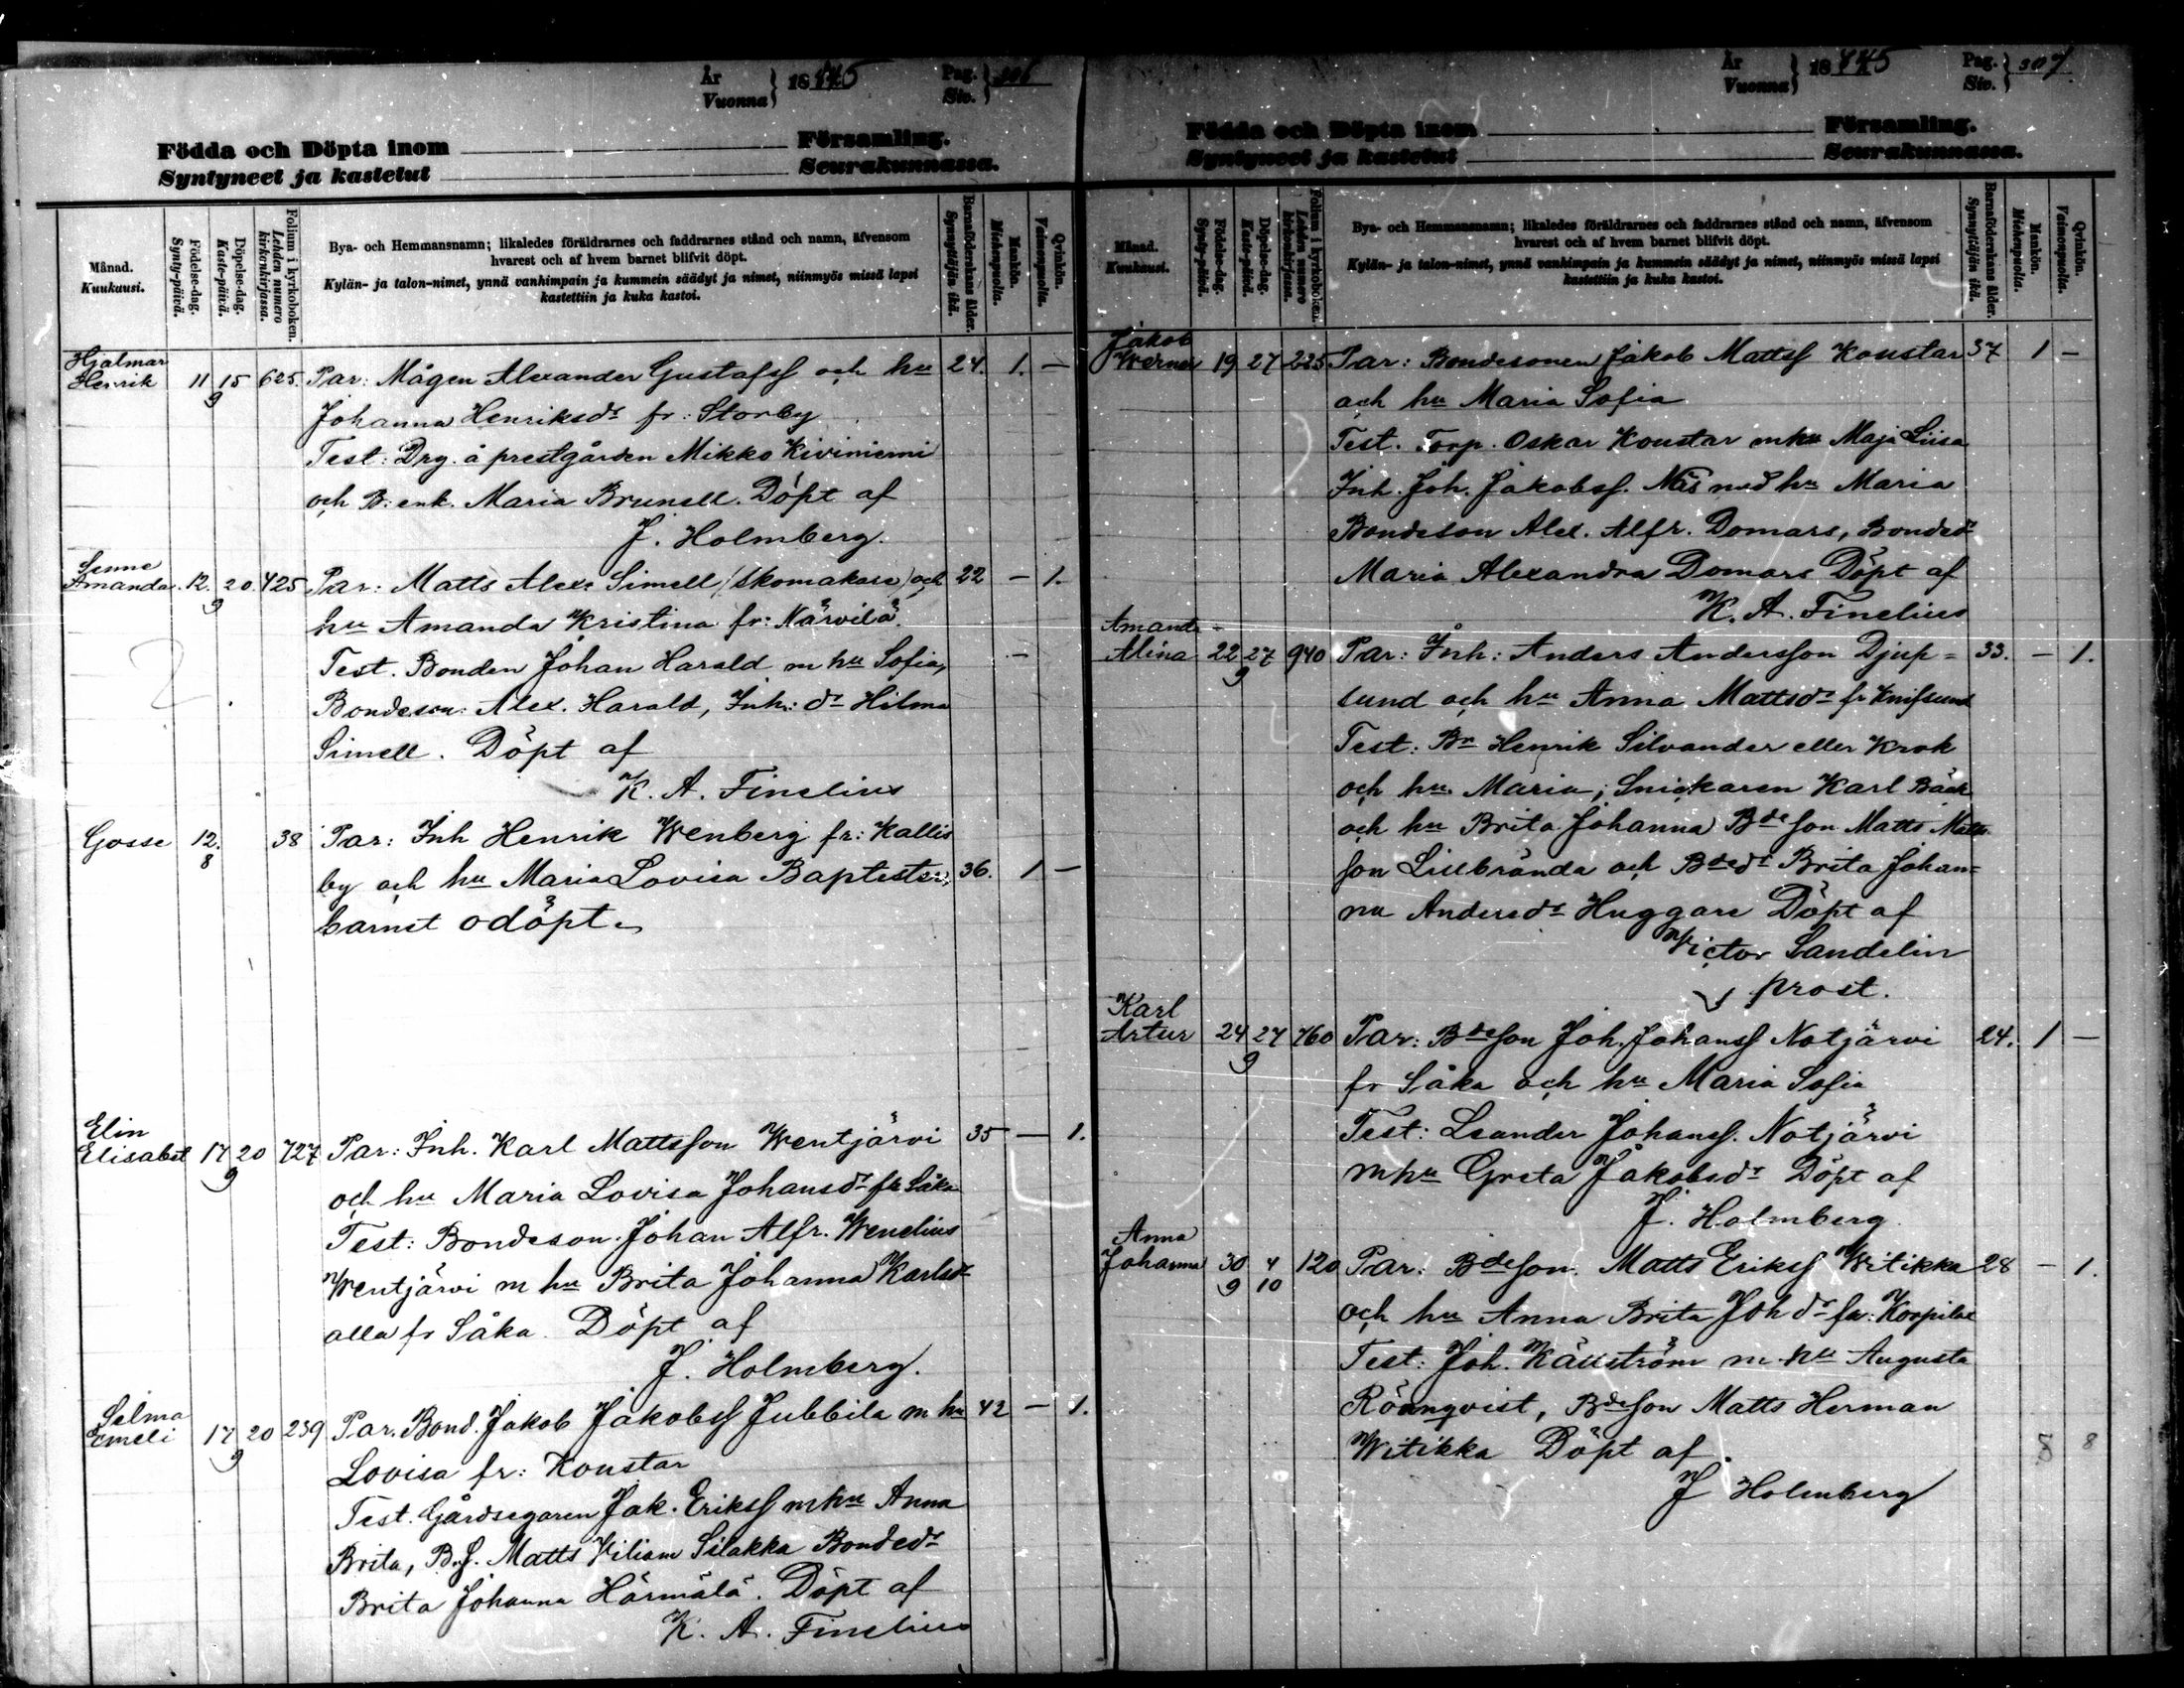 År
Vuonna } 18
Pag.
Siv. } 306
Födda och Döpta inom Församling.
Syntyneet ja kastetut Seurakunnassa.
Månad.
Kuukausi.
Födelse-dag.
Synty-päivä.
Döpelse-dag.
Kaste-päivä.
Folium i kyrkoboken.
Lehden numero kirkonkirjassa.
Bya- och Hemmansnamn; likaledes föräldrarnes och faddrarnes stånd och namn, äfvensom
hvarest och af hvem barnet blifvit döpt.
Kylän- ja talon-nimet, ynnä vanhimpain ja kummein säädyt ja nimet, niinmyös missä lapsi
kastettiin ja kuka kastoi.
Barnaföderskans ålder.
Synnyttäjän ikä.
Mankön.
Miehenpuolia.
Qvinkön.
Vaimonpuolia.
Hjalmar
Henrik 11 15 625. Par: Mågen Alexander Gustafss och hu 24. 1. –
9
Johanna Henriksdr fr: Storby
Test: Drg. å prestgården Mikko Kiviniemi
och B: enk. Maria Brunell. Döpt af
J. Holmberg.
Senne
Amanda 12. 20. 425 Par: Matts Alexr Simell (skomakare) och 22 – 1.
9
hu Amanda Kristina fr: Närvilä.
Test. Bonden Johan Harald m hu Sofia,
Bondeson: Alex. Harald, Inh: dr Hilma
Simell. Döpt af
K. A. Finelius
Gosse 12. 38 Par: Inh Henrik Wenberg fr: Kallis
8
by och hu Maria Lovisa Baptister, 36. 1 –
barnet odöpt.
Elin
Elisabet 17 20 727 Par: Inh. Karl Mattsson Wentjärvi 35 – 1.
9
och hu Maria Lovisa Johansdr fr Såka
Test: Bondeson. Johan Alfr. Wenelius
Wentjärvi m hu Brita Johanna Karlsdr
alla fr Såka. Döpt af
J. Holmberg.
Selma
Emeli 17 20 239 Par. Bond. Jakob Jakobss Jubbila m hu 42 – 1.
9
Lovisa fr: Koustar
Test. Gårdsegaren Jak. Erikss m hu Anna
Brita, B.s. Matts Viliam Silakka Bondedr
Brita Johanna Härmälä. Döpt af
K. A. Finelius
År
Vuonna } 18
Pag.
Siv. } 307
Födda och Döpta inom Församling.
Syntyneet ja kastetut Seurakunnassa.
Månad.
Kuukausi.
Födelse-dag.
Synty-päivä.
Döpelse-dag.
Kaste-päivä.
Folium i kyrkoboken.
Lehden numero kirkonkirjassa.
Bya- och Hemmansnamn; likaledes föräldrarnes och faddrarnes stånd och namn, äfvensom
hvarest och af hvem barnet blifvit döpt.
Kylän- ja talon-nimet, ynnä vanhimpain ja kummein säädyt ja nimet, niinmyös missä lapsi
kastettiin ja kuka kastoi.
Barnaföderskans ålder.
Synnyttäjän ikä.
Mankön.
Miehenpuolia.
Qvinkön.
Vaimonpuolia.
Jakob
Werner 19 27 225 Par: Bondesonen Jakob Mattss Koustar 37 1 –
och hu Maria Sofia
Test. Torp. Oskar Koustar m hu Maja Liisa
Inh. Joh. Jakobss. Näs med hu Maria
Bondeson Alex. Alfr. Domars, Bondedr
Maria Alexandra Domars Döpt af
K. A. Finelius
Amanda
Alina 22 27 940 Par: Inh: Anders Andersson Djup= 33. – 1.
9
sund och hu Anna Mattsdr fr Knifsund
Test: Br Henrik Silvander eller Krok
och hu Maria; Snickaren Karl Bäck
och hu Brita Johanna Bdeson Matts Matts
son Lillbrända och Bdedr Brita Johan=
na Andersdr Huggare Döpt af
Victor Sandelin
prost.
Karl
Artur 24 27 760 Par: Bdeson Joh. Johanss Notjärvi 24. 1 –
9
fr Såka och hu Maria Sofia
Test: Leander Johanss. Notjärvi
m hu Greta Jakobsdr Döpt af
J. Holmberg.
Anna
Johanna 30 4 120 Par: Bdeson. Matts Erikss Witikka 28 – 1.
9 10
och hu Anna Brita Joh dr fr: Korpilax
Test: Joh. Källström m. hu Augusta
Rönnqvist, Bdeson Matts Herman
Witikka Döpt af 8
J Holmberg